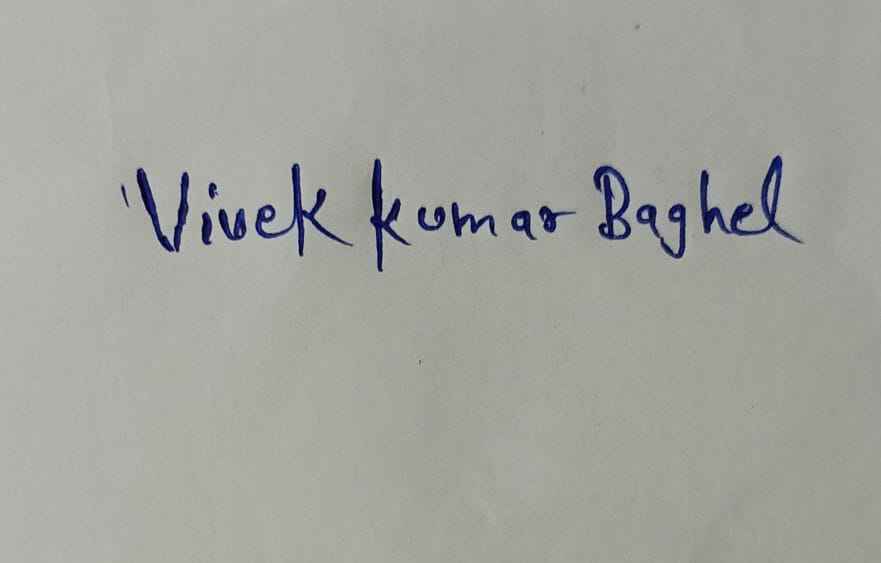 Vivek kumar Baghel